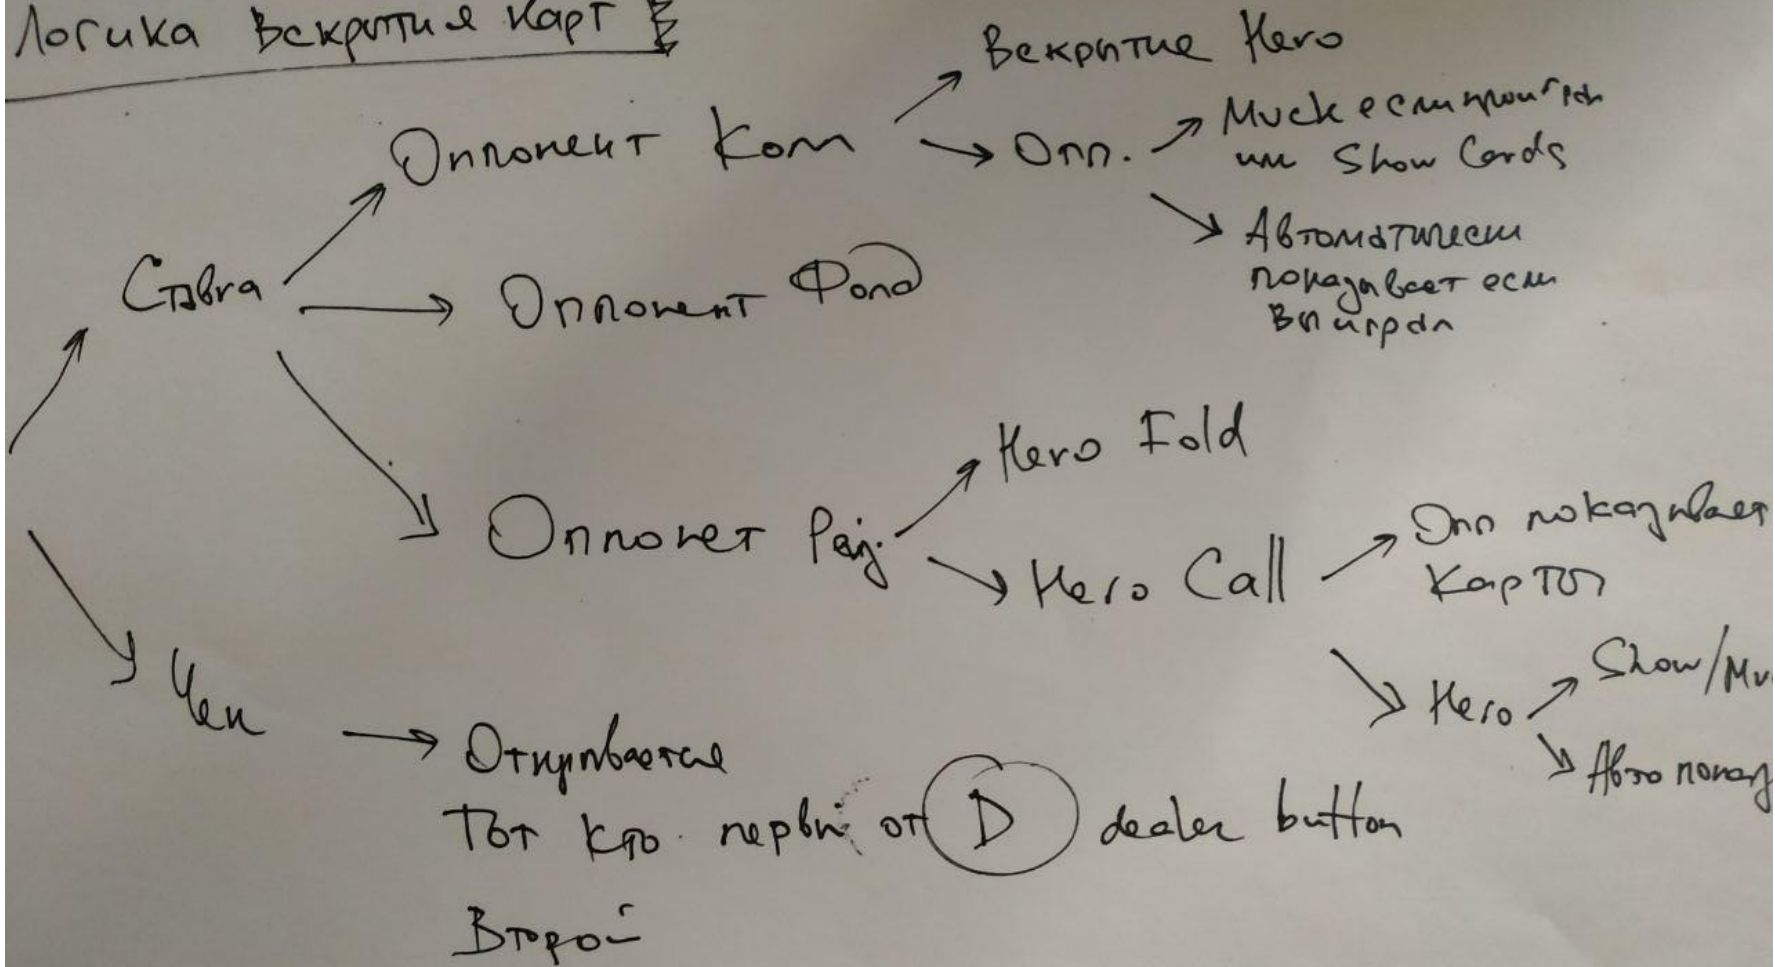 Логика Вскрытия карт
Вскрытие Hero
Оппонент Колл
Опп.
Muck если проиграл
или Show Cards
Автоматически
показывает если
Выиграл
Ставка
Оппонент Фолд
Hero Fold
Оппонет Рейз.
Hero Call
Опп показывает
карты
Hero
Show/Mu
Авто показ
Чек
Открывается
Тот кто первый от D dealer button
Второй